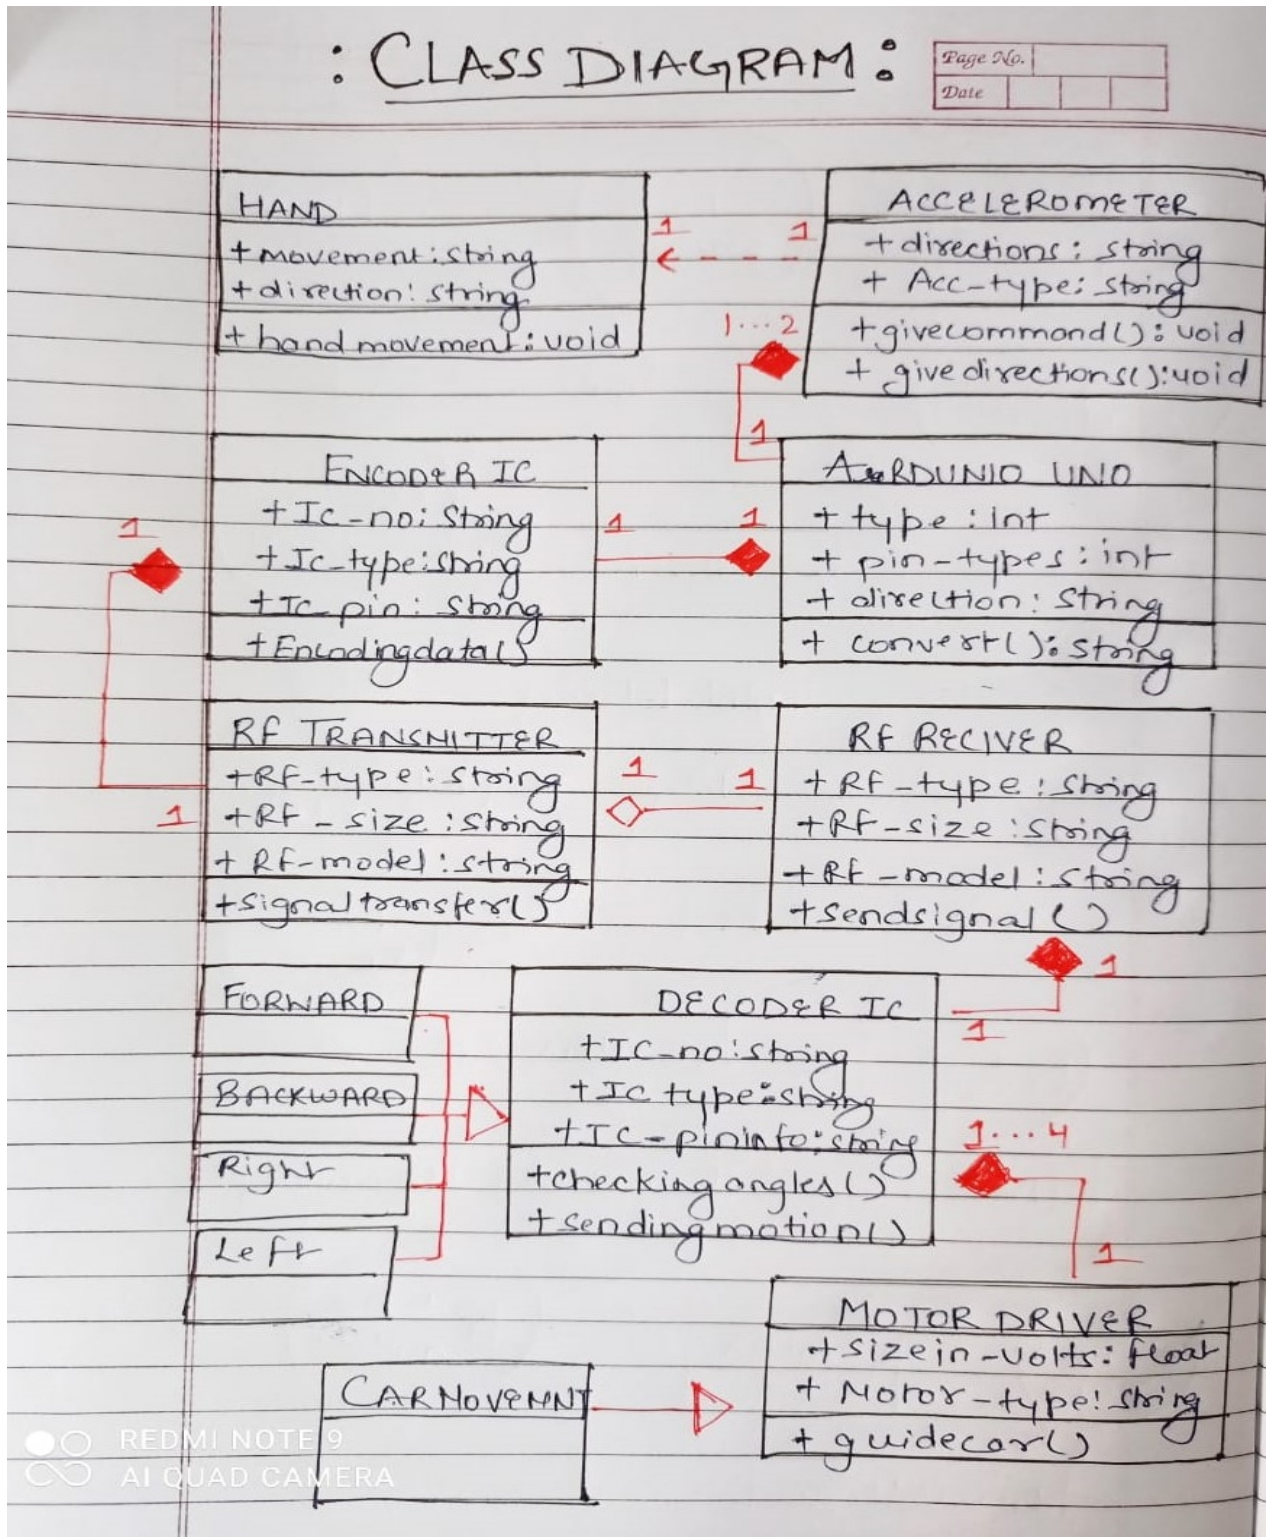 : CLASS DIAGRAM :
Page No.
Date
HAND
+ movement: string
+ direction: string
+ hand movement: void
1 1
ACCELEROMETER
+ directions: string
+ Acc-type: string
+ givecommand(): void
+ givedirections(): void
1...2
1
ENCODER IC
+ Ic-no: String
+ Ic-type: string
+ Ic-pin: String
+ Encodingdata()
1
1 1
ARDUNIO UNO
+ type: int
+ pin-types: int
+ direction: String
+ convert(): string
RF TRANSMITTER
+ RF-type: string
+ RF-size: string
+ RF-model: string
+ signaltransfer()
1
1 1
RF RECIVER
+ RF-type: string
+ RF-size: string
+ RF-model: string
+ sendsignal()
1
1
FORWARD
BACKWARD
Right
Left
DECODER IC
+ IC-no: string
+ IC type: string
+ IC-pininfo: string
+ checking angles()
+ sendingmotion()
1...4
1
MOTOR DRIVER
+ sizein-volts: float
+ Motor-type: string
+ guidecar()
CARMOVEMNT
REDMI NOTE 9
AI QUAD CAMERA